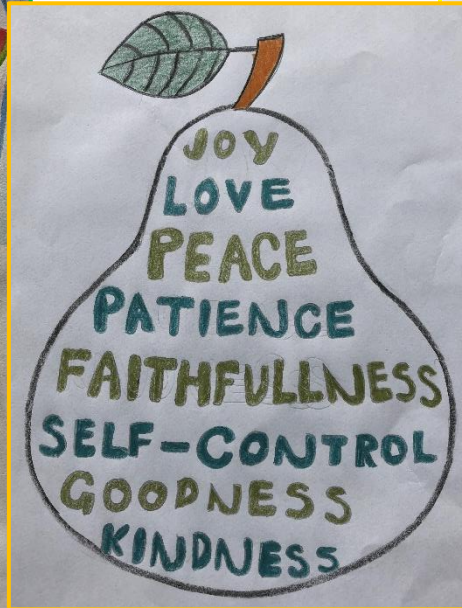 JOY
LOVE
PEACE
PATIENCE
FAITHFULLNESS
SELF-CONTROL
GOODNESS
KINDNESS